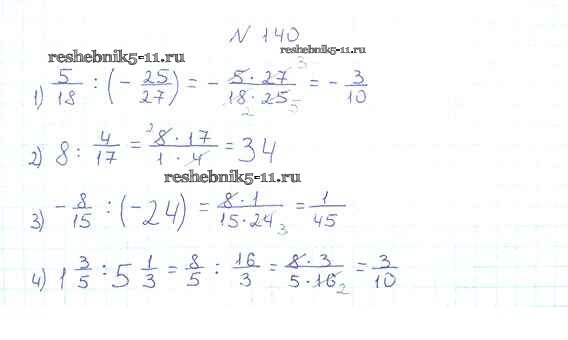 N 140
reshebnik5-11.ru
reshebnik5-11.ru
1) 5/18 : (- 25/27) = - 5 · 27 3/18 2 · 25 5 = - 3/10
2) 8 : 4/17 = 2 8 · 17/1 · 4 = 34
reshebnik5-11.ru
3) - 8/15 : (-24) = 8 · 1/15 · 24 3 = 1/45
4) 1 3/5 : 5 1/3 = 8/5 : 16/3 = 8 · 3/5 · 16 2 = 3/10